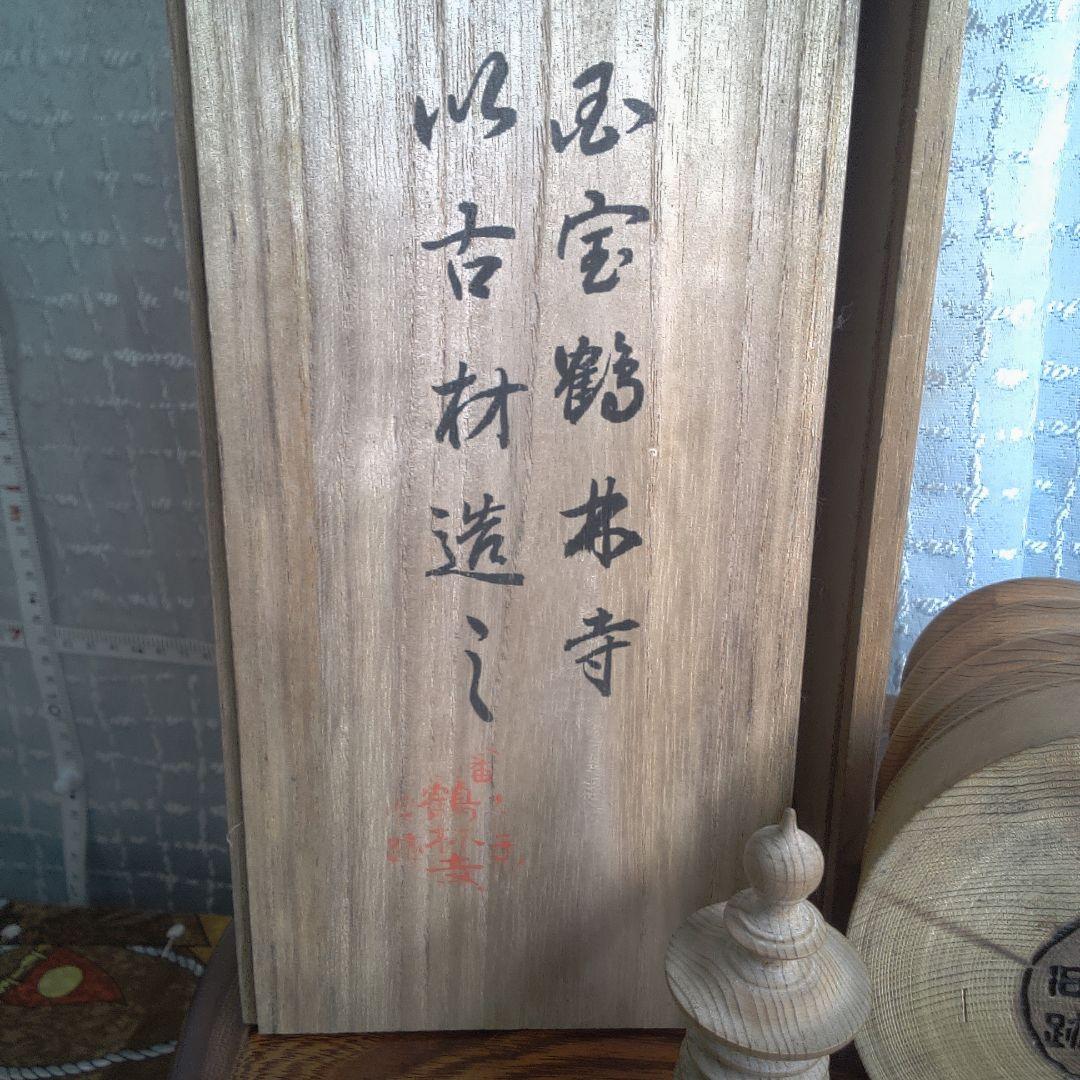 国宝鶴林寺
以古材造之
鶴林寺
旧
跡